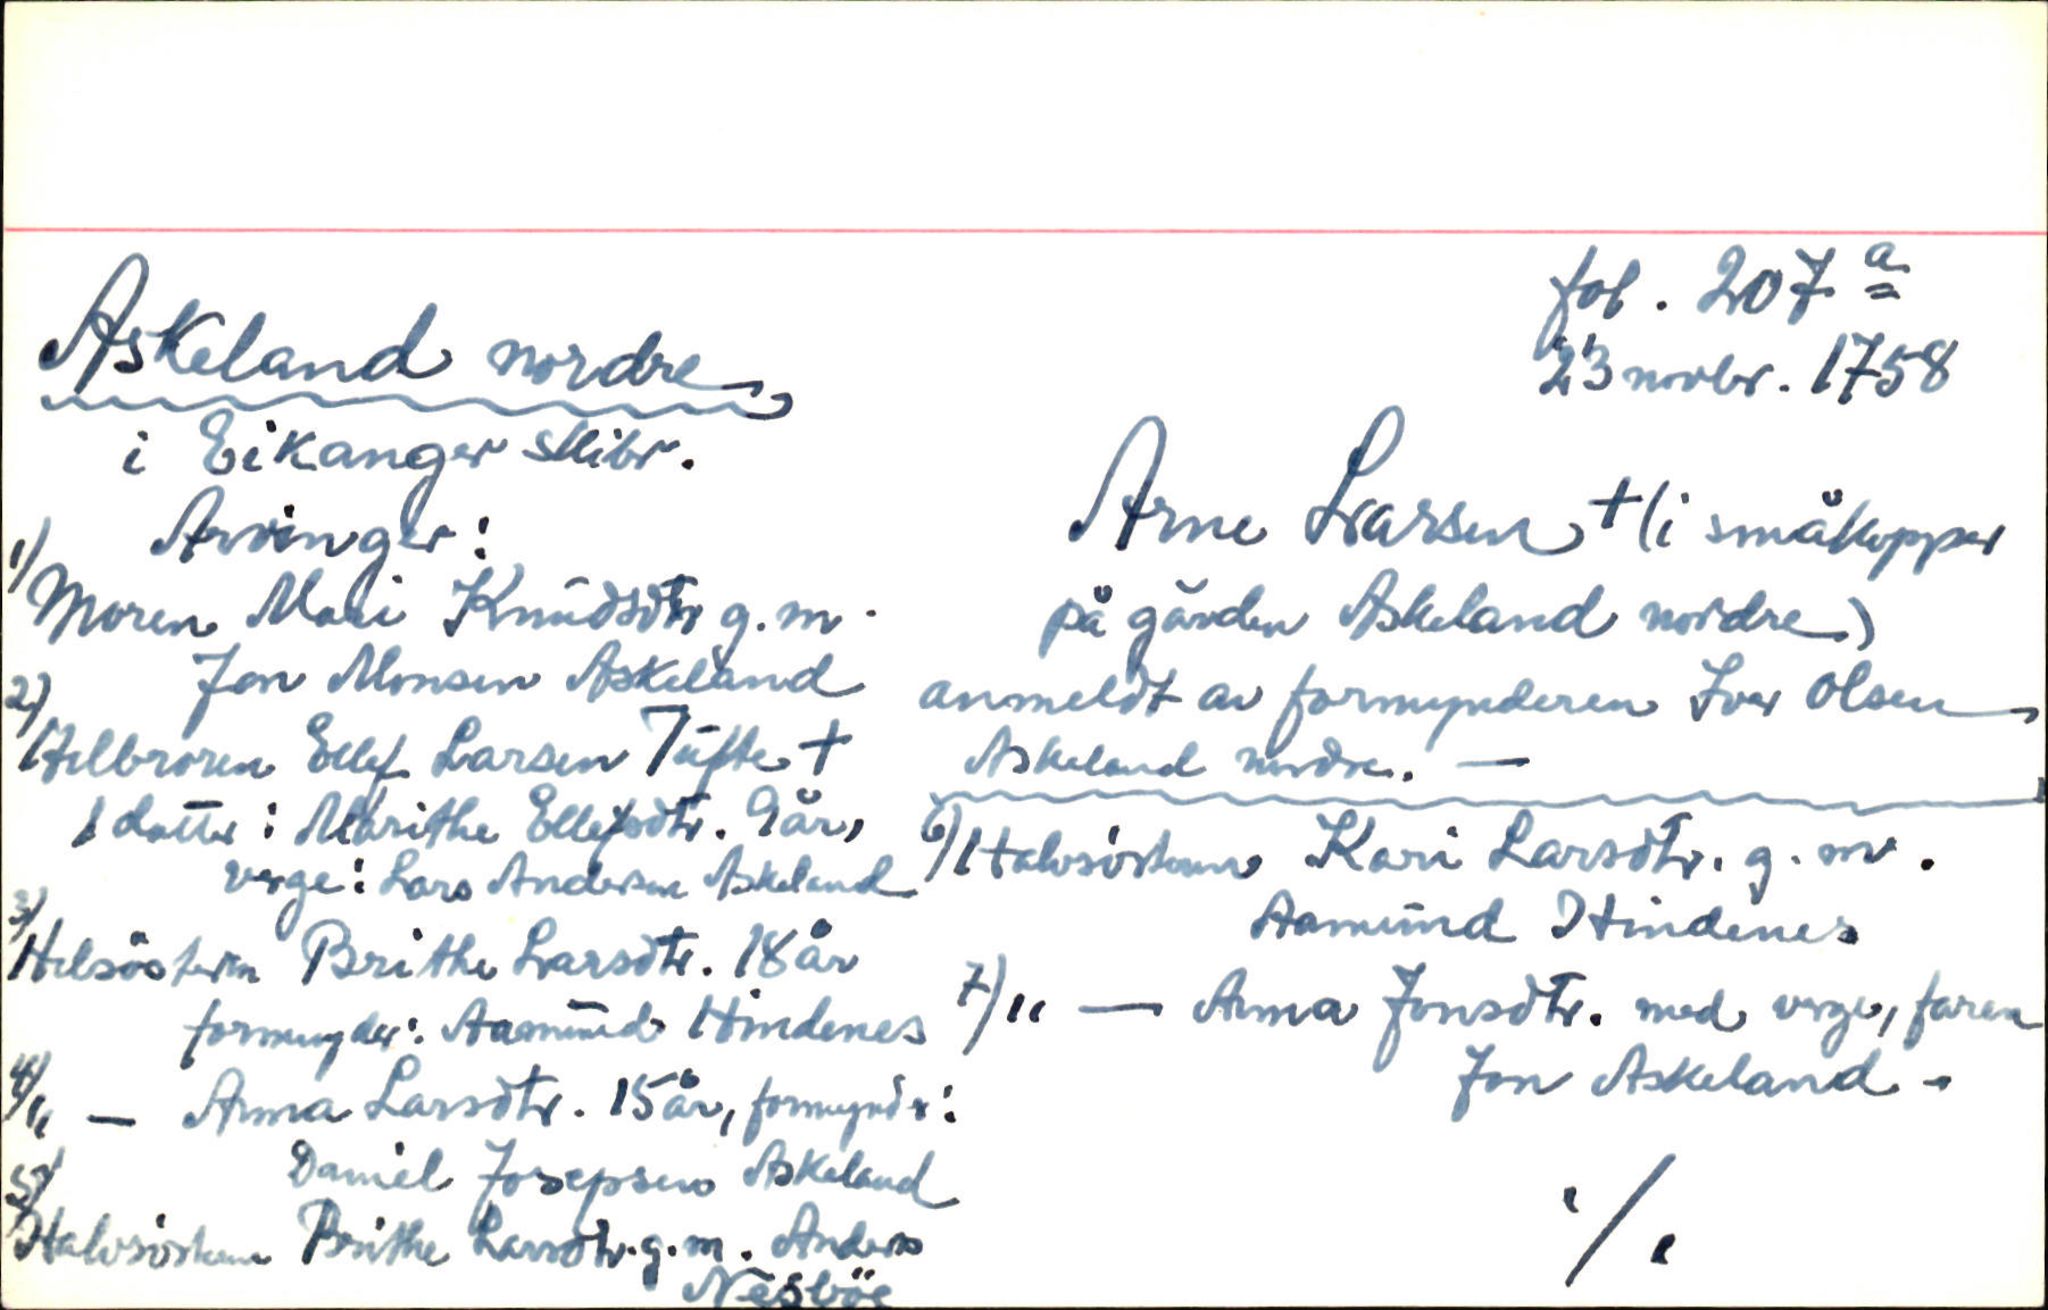 fol. 207 a
23 novbr. 1758
Askeland nordre
i Eikanger skibr.
Arne Larsen + (i småkopper
på gården Askeland nordre)
anmeldt av formynderen Iver Olsen
Askeland nordre. —
Arvinger:
1) Moren Mari Knudsdtr g.m.
Jon Monsen Askeland
2) Helbroren Ellef Larsen Tufte +
1 datter: Marithe Ellefsdtr. 9 år,
verge: Lars Andersen Askeland
3) Helsösteren Brithe Larsdtr. 18 år
formynder: Aamund Hindenes
4) " — Anna Larsdtr. 15 år, formyndr:
Daniel Josepsen Askeland
5) Halvsösteren Brithe Larsdtr. g.m. Anders
Nesböe
6) Halvsösteren Kari Larsdtr. g.m.
Aamund Hindenes
7) " — Anna Jonsdtr. med verge, faren
Jon Askeland -
./.